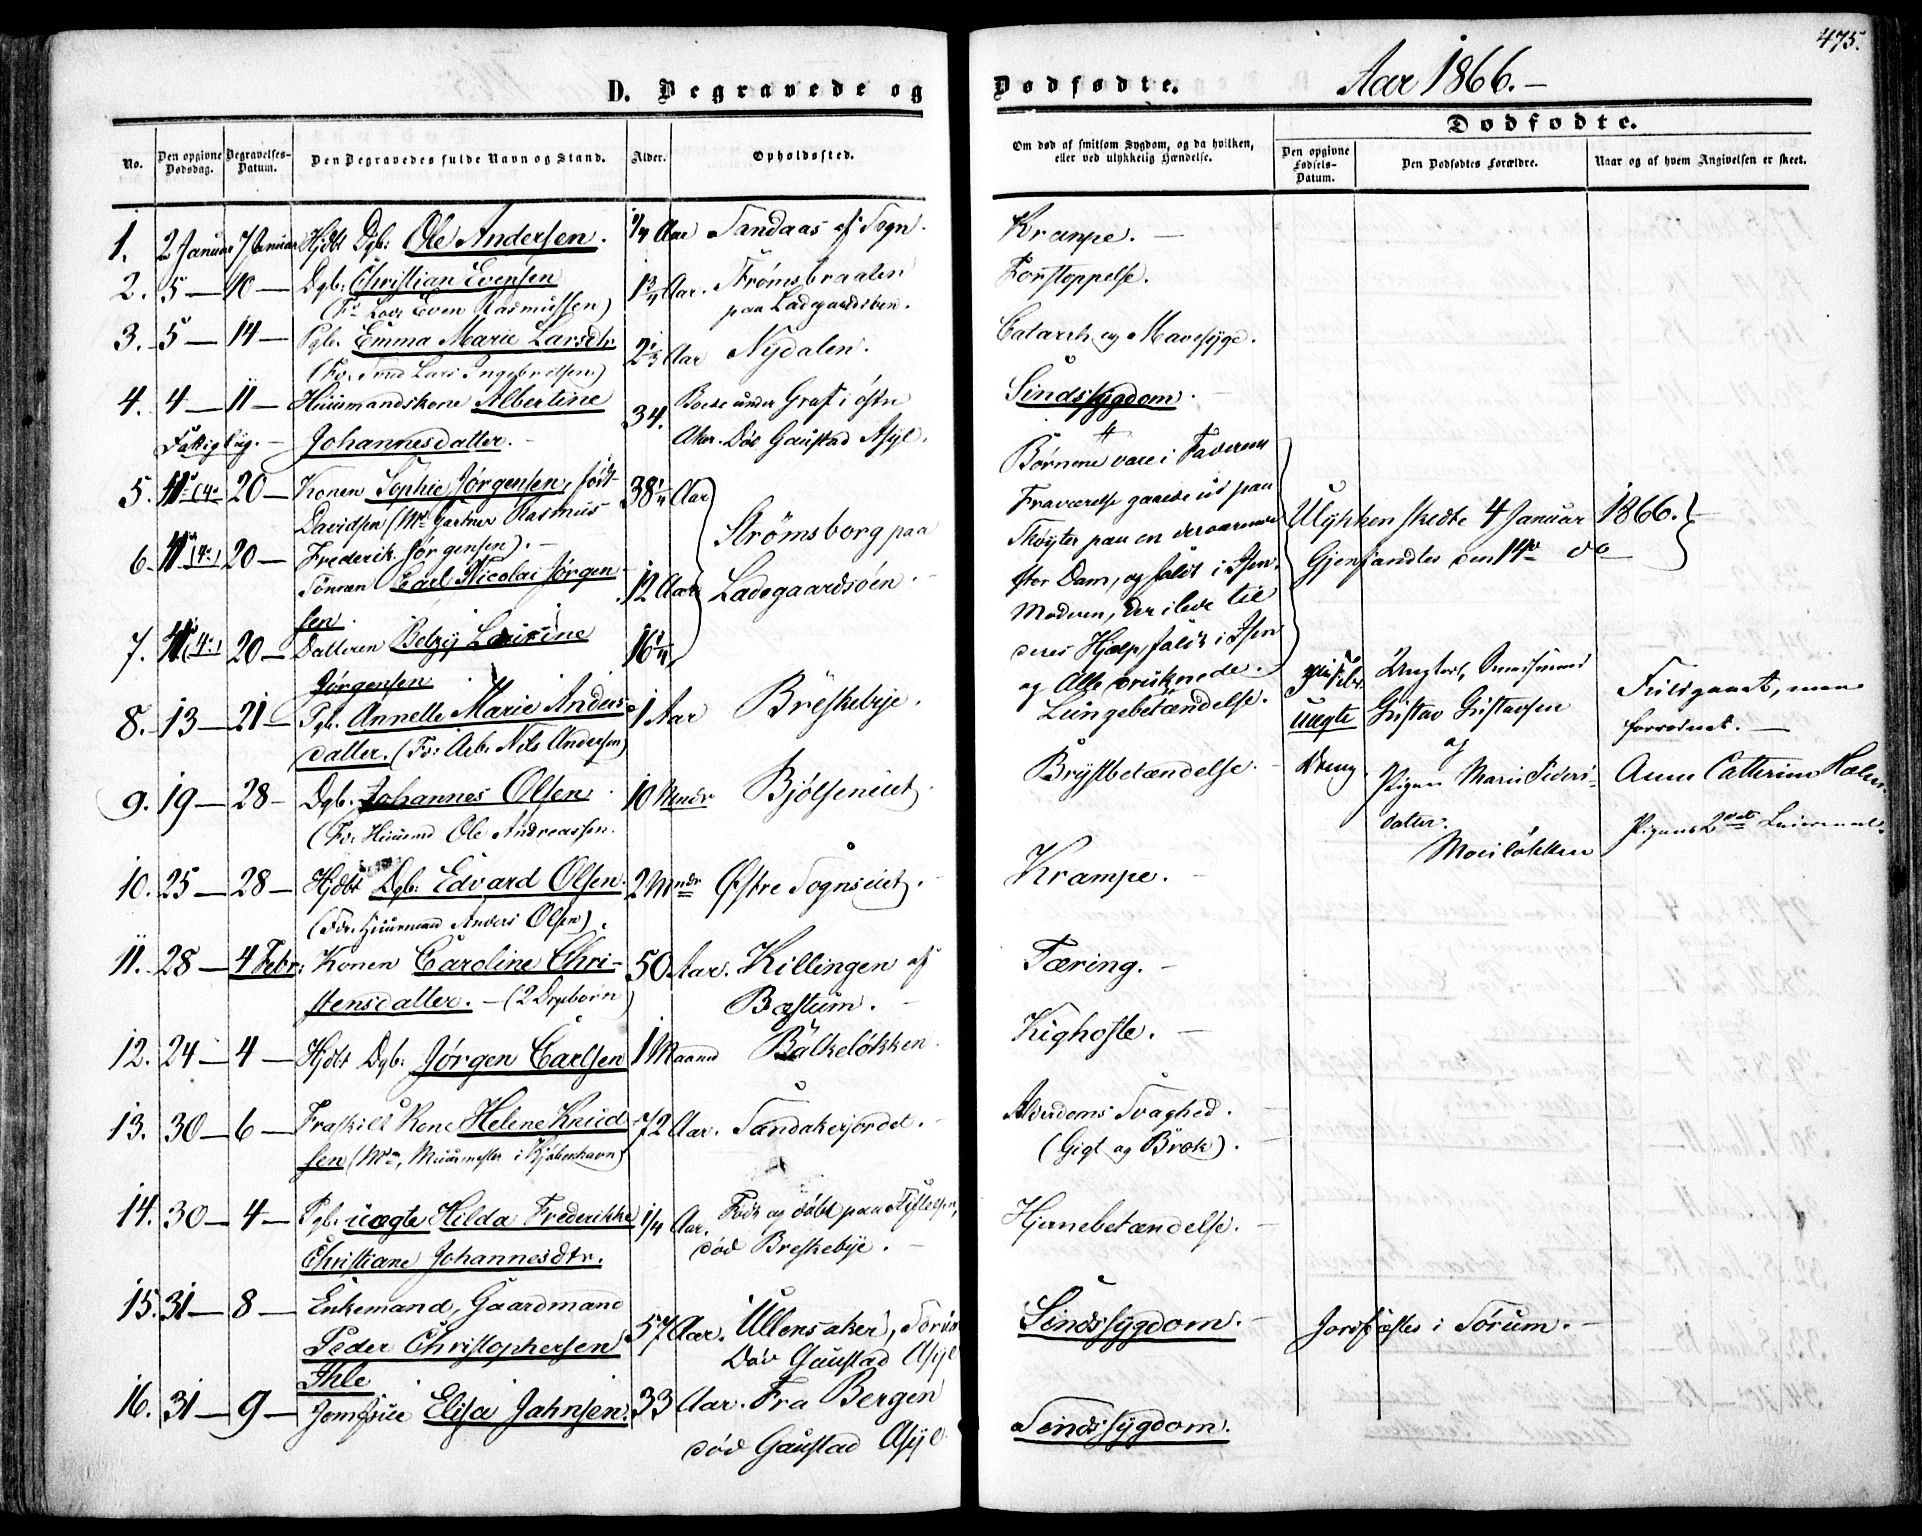 475.
D. Begravede og Dødfødte. Aar 1866.-
No.
Den opgivne Dødsdag.
Begravelses-Datum.
Den Begravedes fulde Navn og Stand.
Alder.
Opholdssted.
Om død af smitsom Sygdom, og da hvilken,
eller ved ulykkelig Hændelse.
Dødfødte.
Den opgivne Fødsels-Datum.
Den Dødfødtes Forældre.
Naar og af hvem Angivelsen er skeet.
1. 2 Januar 7 Januar Hjdbt Dgb: Ole Andersen. 1/4 Aar Sandaas af Sogn. Krampe. -
2. 5 - 10 - Dgb: Christian Evensen 1 3/4 Aar. Strømsbraaten Forstoppelse.
Even Rasmussen) paa Ladegaardsøen.
3. 5 - 14 - Pgb. Emma Marie Larsdtr. 2 1/3 Aar Nydalen. Catarrh og Mavesyge.
Lars Ingebretsen.)
4. 4 - 11 - Huusmandskone Albertine 34. under Graf i østre Sindssygdom.
Fattiglig. - Johannesdatter. - Aker. Død Gaustad Asyl.
5. 20 - Konen Sophie Jørgensen, født 38 1/4 Aar Børnene vare i Faderens
Davidsen (Md Gartner Rasmus Strømsborg paa Fraværelse gaaede ud paa
6. 20 - Frederik Jørgensen). - Ladegaardsøen. - Skøyter paa en derværende
Sønnen Carl Nicolai Jørgen 12 Aar stor Dam, og faldt i Isen.
sen. Moderen, der ilede til
7. 20 - Datteren Betzy Lovisine 16 1/4 deres Hjælp, faldt i Isen
Jørgensen og Alle druknede.
Ulykken skedte 4 Januar 1866.
Gjenfandtes den 14de do
8. 13 - 21 - Pgb. Annette Marie Anders 1 Aar Briskebye. Lungebetændelse.
datter. (Fr: Arb. Nils Andersen)
uægte Dreng
Gustav Gustavsen
af
Pigen Marie Peders-
datter.
Fuldgaaet, men
Anne Catterine Holm.
Pigens 2det Leiermaal.
9. 19 - 28 - Dgb. Johannes Olsen 10 Mndr Bjølseneiet. Brystbetændelse. -
(Fr. Huusmd Ole Andreassen.
10. 25 - 28 - Hjdbt Dgb: Edvard Olsen. 2 Mndr Østre Sognseiet. - Krampe. -
(Fdr. Huusmand Anders Olsen).
11. 28 - 4 Febr: Konen Caroline Chri- 50 Aar. Killingen af Tæring. -
stensdatter. - (2 Dgbørn) Bæstum. -
12. 24 - 4 - Hjdbt Dgb: Jørgen Carlsen 1 Maaned Balkeløkken. Kighoste. -
13. 30 - 6 - Fraskilt Kone Helene Knud 72 Aar. Sandakerjordet. - Alderdoms Svaghed. -
sen (Mn, Muurmester i Kjøbenhavn) (Gigt og Brok). -
14. 30 - 4 - Pgb. uægte Hilda Frederikke 1/4 Aar. Født og døbt paa Stiftelsen, Hjernebetændelse. -
Christiane Johannesdtr. død Breskebye. -
15. 31 - 8 - Enkemand, Gaardmand 57 Aar. Ullensaker, Sørum Sindssygdom. - Jordfæstes i Sørum. -
Peder Christophersen Død Gaustad Asyl
Ihle
16. 31 - 9 - Jomfrue Elisa Jahnsen. 33 Aar. Fra Bergen Sindssygdom.
død Gaustad Asyl